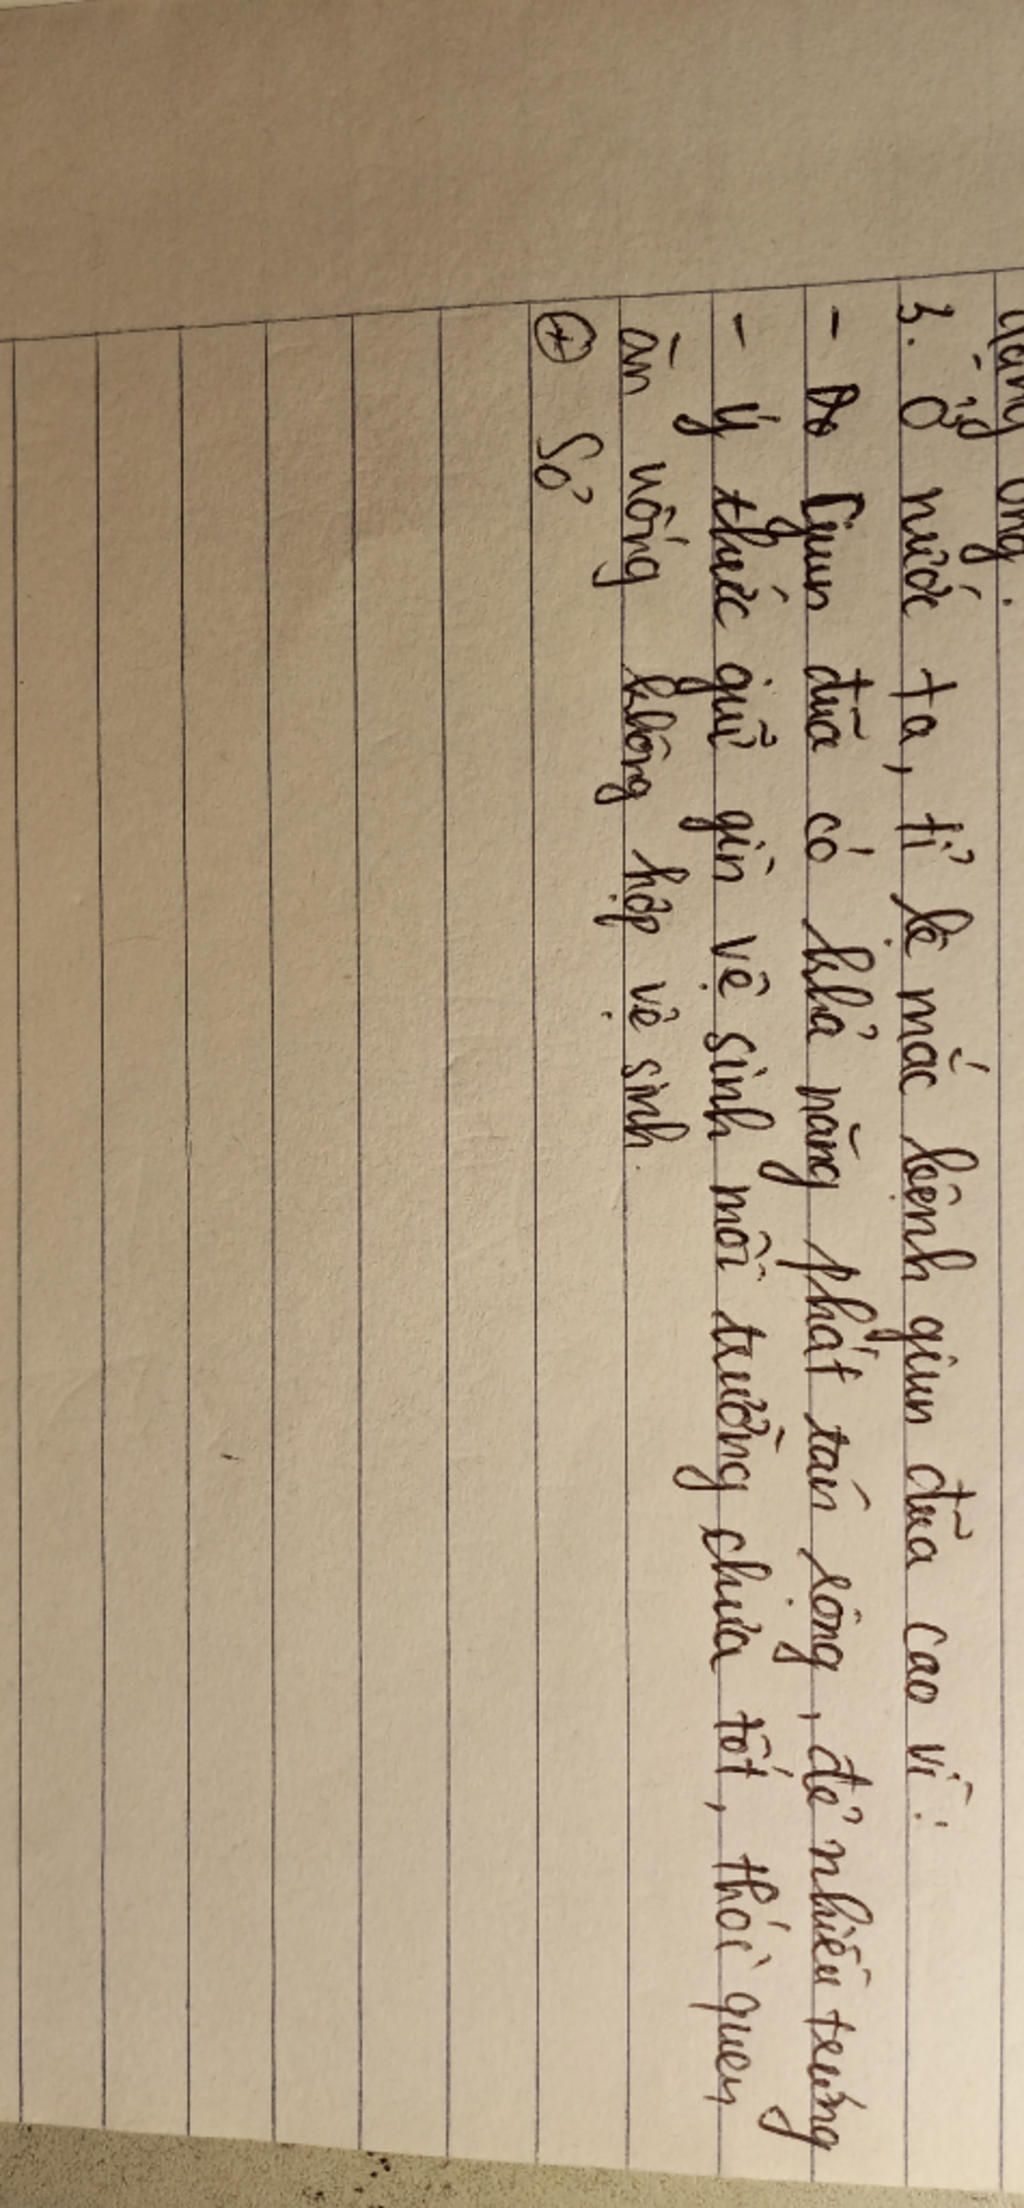 dạng ống.
3. Ở nước ta, tỉ lệ mắc bệnh giun đũa cao vì:
- Do Giun đũa có khả năng phát tán rộng, đẻ nhiều trứng
- Ý thức giữ gìn vệ sinh môi trường chưa tốt, thói quen
ăn uống không hợp vệ sinh.
⊕ Sở